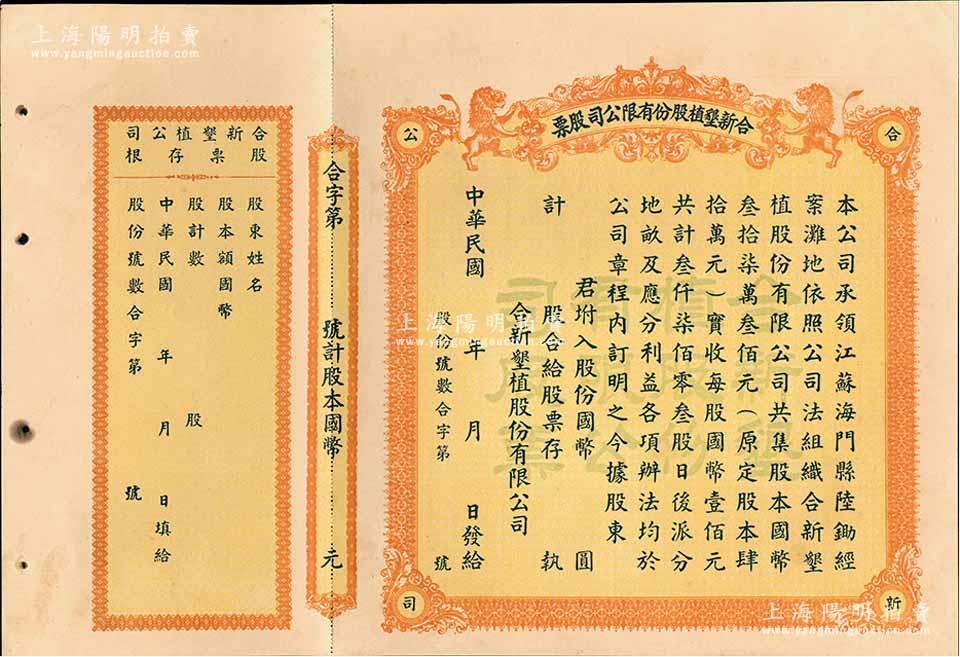 上海陽明拍賣
www.yangmingauction.com
合新墾植股份有限公司股票
合
公
新
司
本公司承領江蘇海門縣陸鋤經
案灘地依照公司法組織合新墾
植股份有限公司共集股本國幣
叁拾柒萬叁佰元(原定股本肆
拾萬元)實收每股國幣壹佰元
共計叁仟柒佰零叁股日後派分
地畝及應分利益各項辦法均於
公司章程內訂明之今據股東
君坿入股份國幣 圓
計 股合給股票存 執
合新墾植股份有限公司
中華民國 年 月 日發給
股份號數合字第 號
合新墾植股份有限公司股票
合字第 號計股本國幣 元
合新墾植公司
股票存根
股東姓名
股本額國幣
股計數 股
中華民國 年 月 日填給
股份號數合字第 號
上海陽明拍賣
www.yangmingauction.com
上海陽明拍賣
www.yangmingauction.com